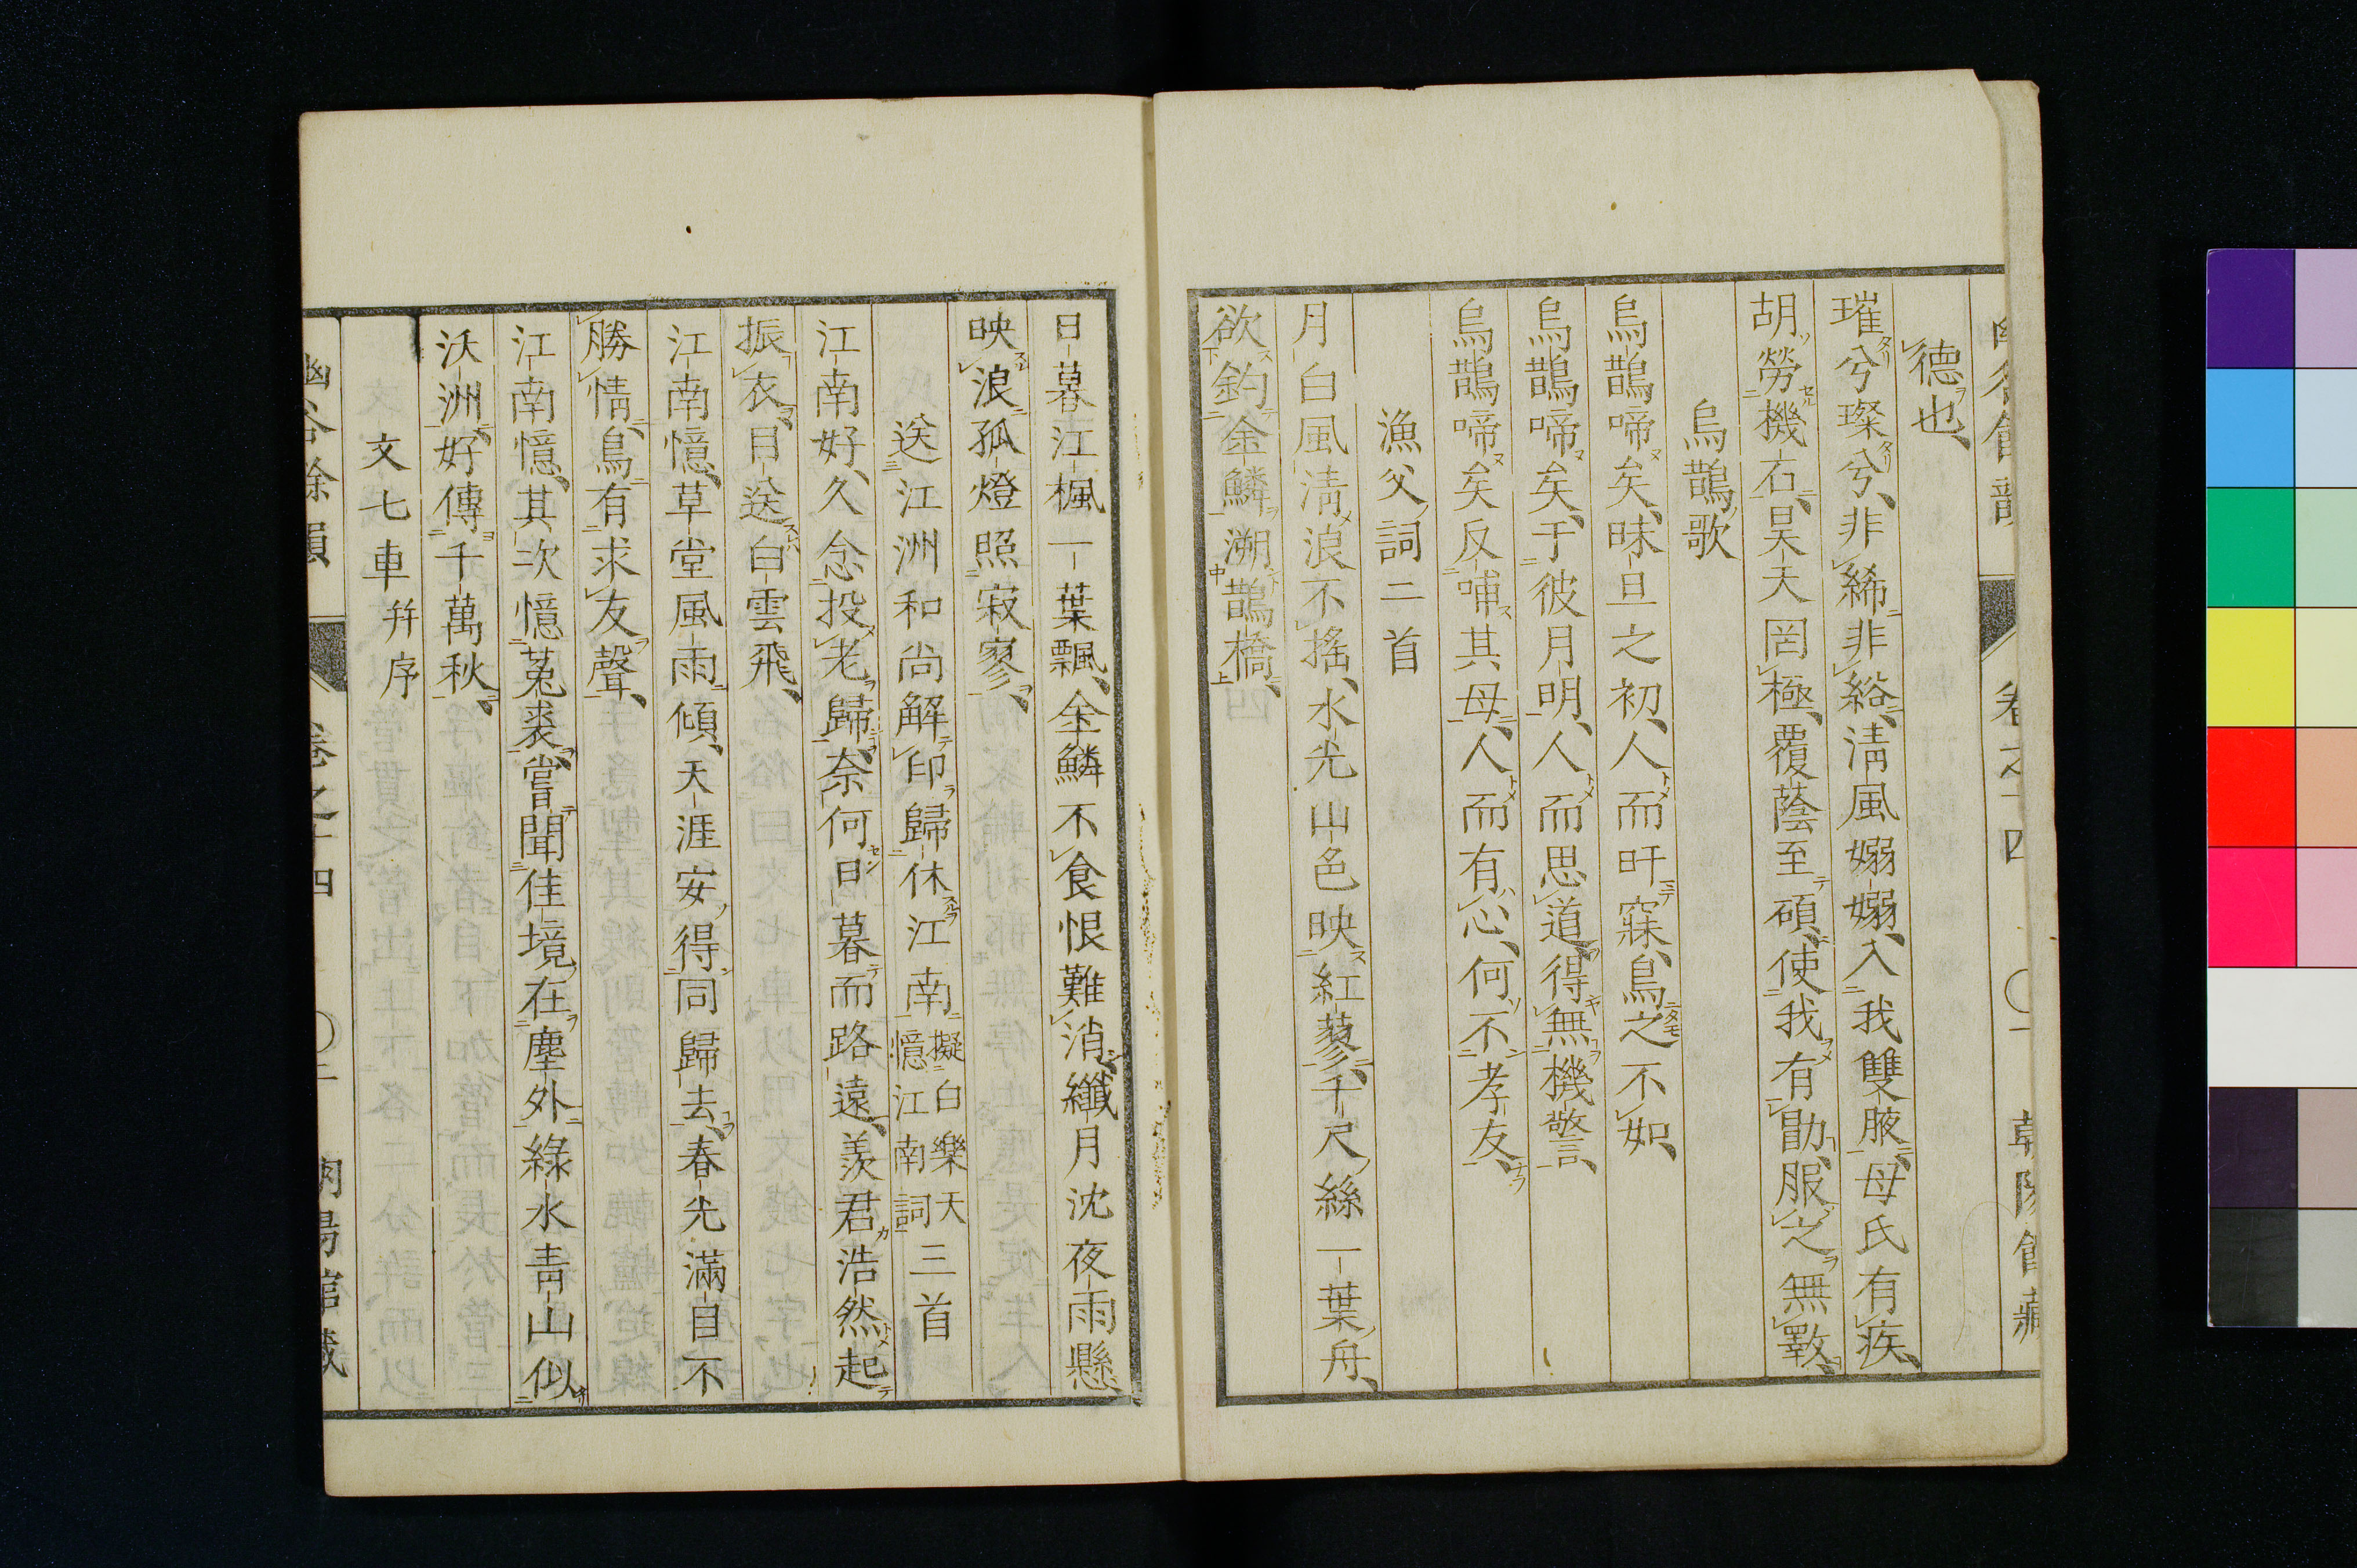 德也、
璀兮璨兮、非絺非綌、淸風嫋嫋、入我雙腋、母氏有疾、
胡勞機石、昊天罔極、覆蔭至碩、使我有勖、服之無斁、
烏鵲歌
烏鵲啼矣、昧旦之初、人而旰寐、鳥之不如、
烏鵲啼矣、于彼月明、人而思道、得無機警、
烏鵲啼矣、反哺其母、人而有心、何不孝友、
漁父詞二首
月白風淸浪不搖、水光山色映紅蓼、千尺絲一葉舟、
欲釣金鱗溯鵲橋、
日暮江楓一葉飄、金鱗不食恨難消、纖月沈夜雨懸、
映浪孤燈照寂寥、
送江洲和尚解印歸休江南擬白樂天憶江南詞三首
江南好、久念投老歸、奈何日暮而路遠、羨君浩然起
振衣、目送白雲飛、
江南憶、草堂風雨傾、天涯安得同歸去、春光滿目不
勝情、鳥有求友聲、
江南憶、其次憶菟裘、嘗聞佳境在塵外、綠水靑山似
沃洲、好傳千萬秋、
文七車幷序
幽谷餘韻 卷之十四 〇二 朝陽館藏